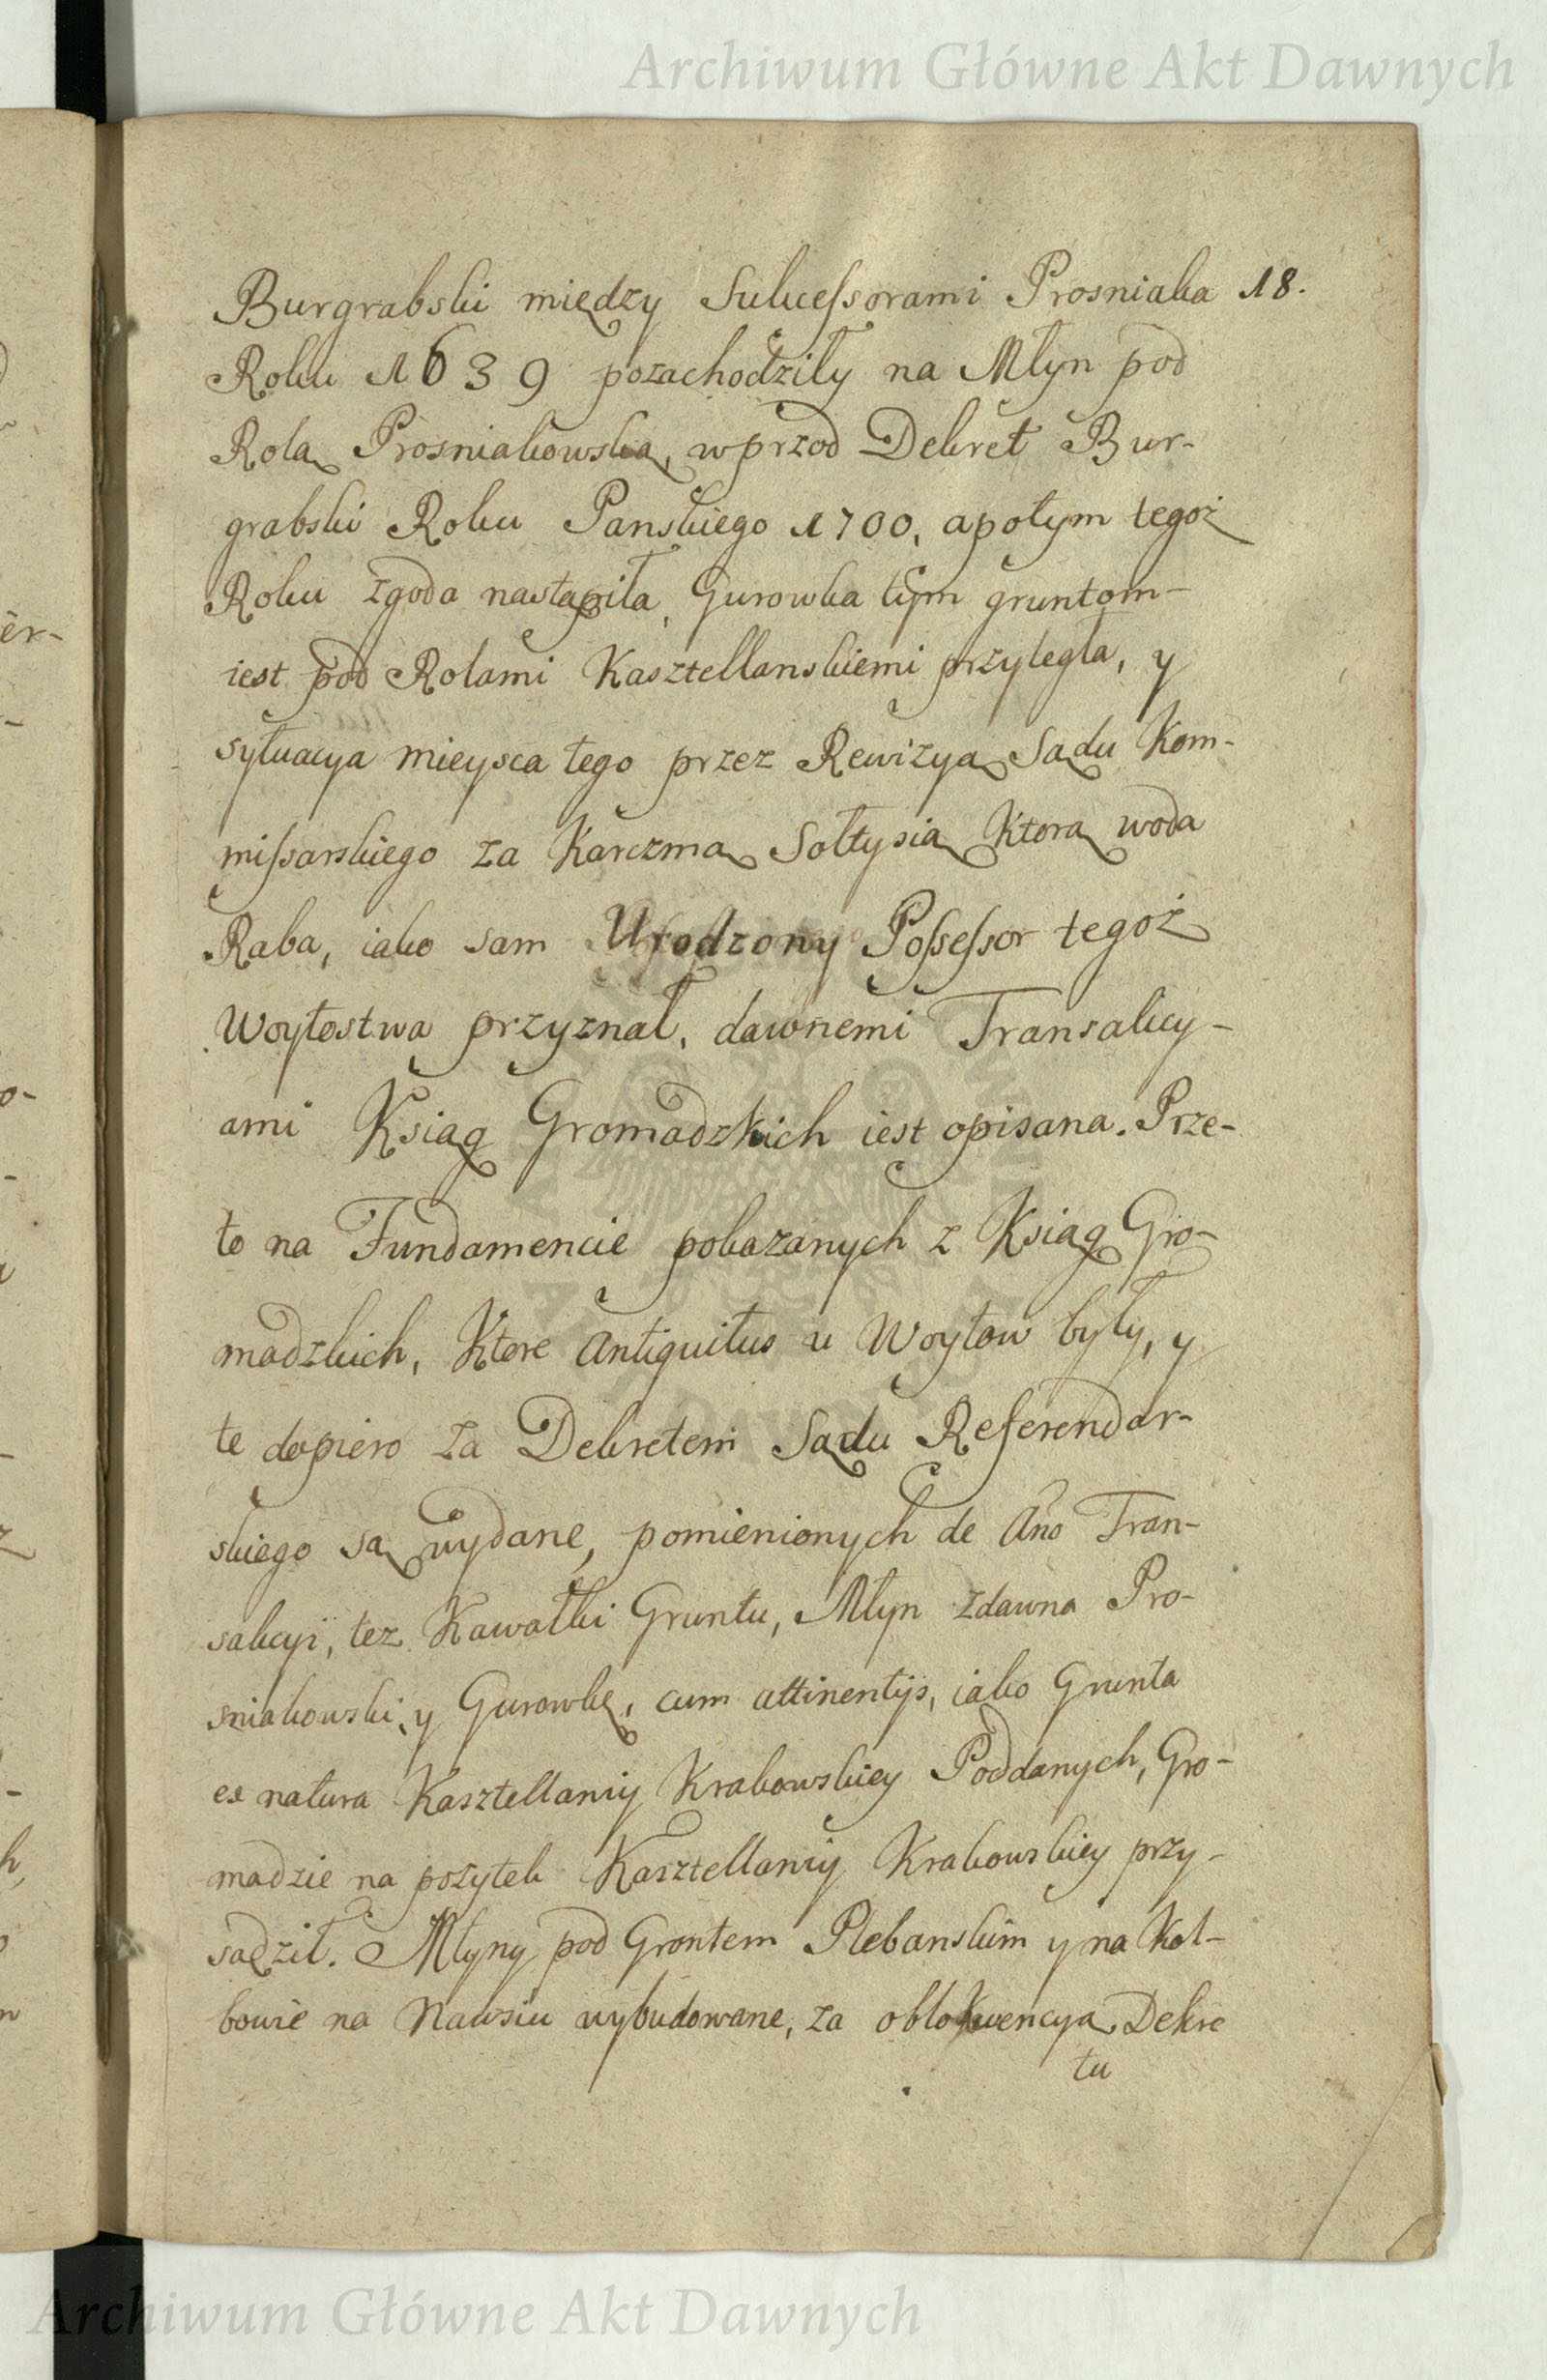 Archiwum Główne Akt Dawnych
Burgrabski między Sukcessorami Prosniaka 18.
Roku 1639 pozachodziły na Młyn pod
Rolą Prosniakowską, wprzod Dekret Bur-
grabski Roku Panskiego 1700, apotym tegoż
Roku zgoda nastąpiła, Gurowka tym gruntom-
iest pod Rolami Kasztellanskiemi przyległa, y
sytuacya mieysca tego przez Rewizyą Sądu Kom-
missarskiego za Karczmą Sołtysią Ktorą woda
Raba, iako sam Urodzony Possessor tegoż
Woytostwa przyznał, dawnemi Transakcy-
ami Ksiąg Gromadzkich iest opisana. Prze-
to na Fundamencie pokazanych z Ksiąg Gro-
madzkich, Ktore Antiquitus u Woytow były, y
te dopiero za Dekretem Sądu Referendar-
skiego są wydane, pomienionych de Ano Tran-
sakcyi, tez Kawałki Gruntu, Młyn zdawna Pro-
sniakowski, y Gurowkę, cum attinentijs, iako Grunta
ex natura Kasztellanij Krakowskiey Poddanych, Gro-
madzie na pożytek Kasztellanij Krakowskiey przy-
sądził. Młyny pod Grontem Plebanskim y na Kol-
bowie na Nawsiu wybudowane, za oblokwencyą Dekre
tu
Archiwum Główne Akt Dawnych